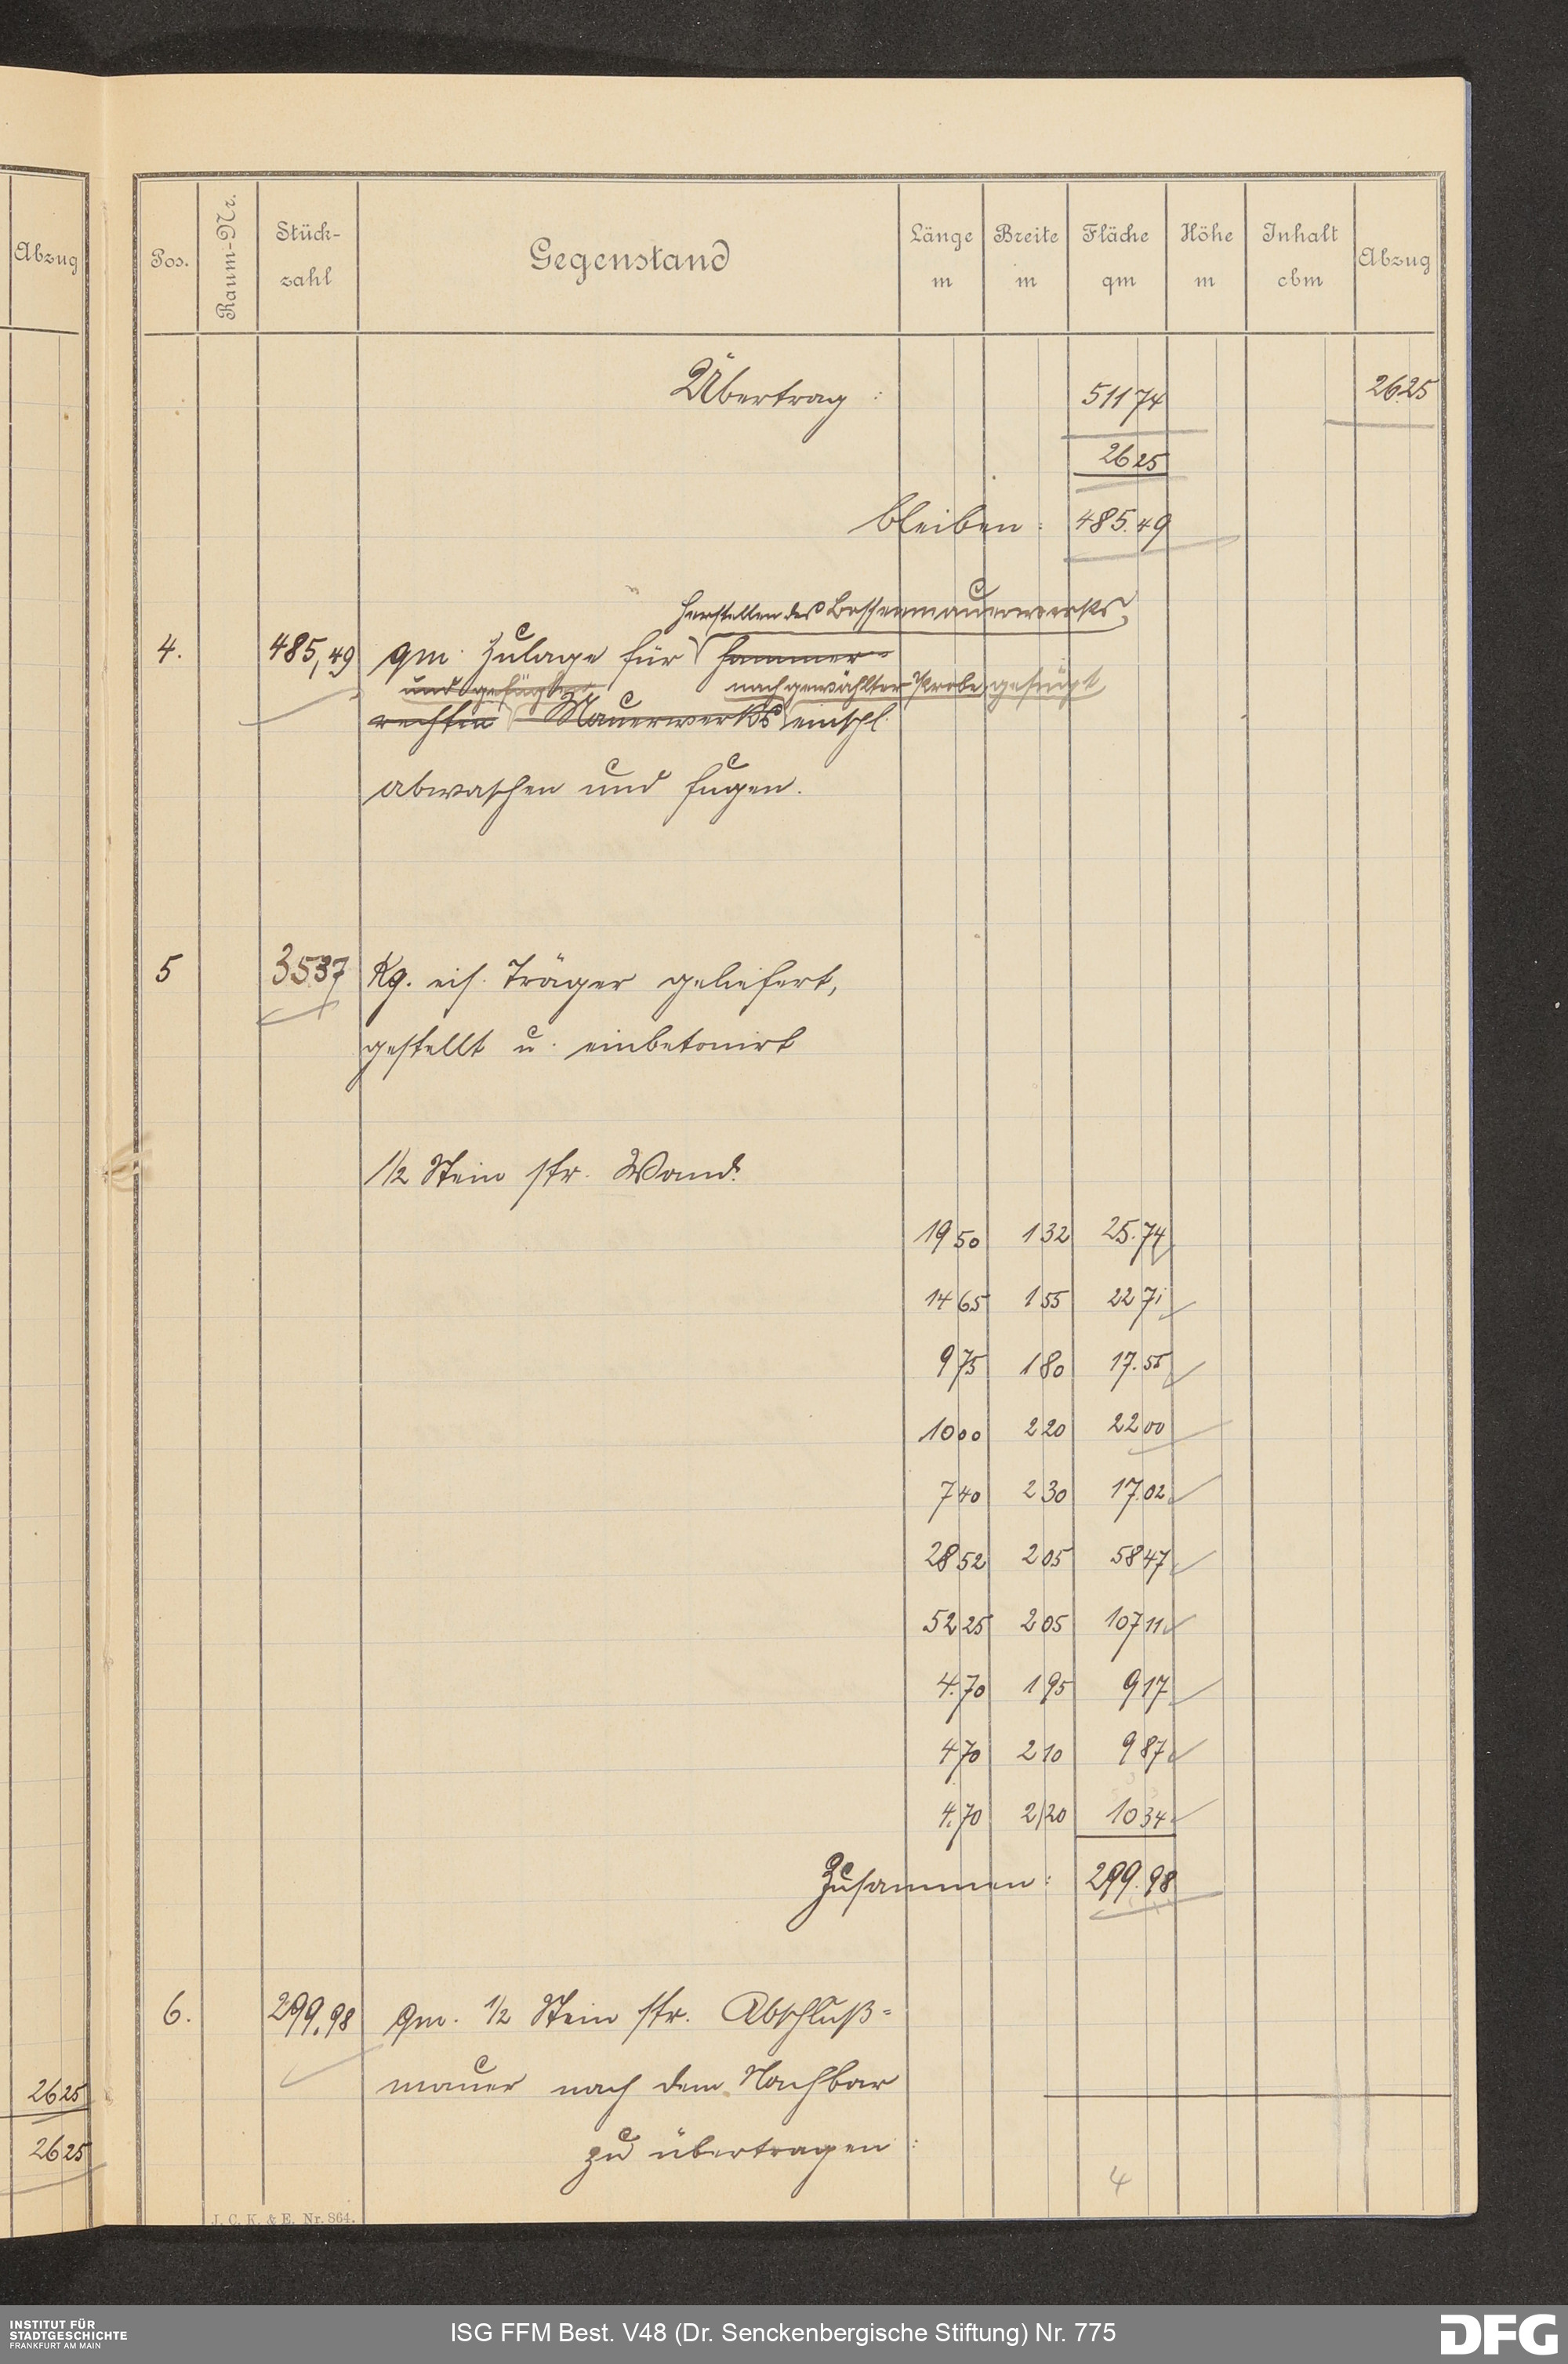 Abzug
2625
2625
Pos. Raum-Nr. Stück-zahl Gegenstand Länge m Breite m Fläche qm Höhe m Inhalt cbm Abzug
Übertrag : 511 74 26.25
26 25
bleiben : 485.49
Herstellen des Bossenmauerwerks
4. 485,49 qm Zulage für hammer-
und gefugten nach gewählter Probe gefugt
rechten Mauerwerks einschl.
abwaschen und fugen.
5 3537 Kg. eis. Träger geliefert,
gestellt u. einbetonirt
1/2 Stein str. Wand.
19 50 1 32 25.74
14 65 1 55 22 71
9 75 1 80 17.55
10 00 2 20 22 00
7 40 2 30 17.02
28 52 2 05 58 47
52 25 2 05 107 11
4.70 1 95 9 17
4 70 2 10 9 87
4.70 2,20 10 34
Zusammen : 299.98
6. 299,98 qm. 1/2 Stein str. Abschluß-
mauer nach dem Nachbar
zu übertragen :
4
J. C. K. & E. Nr. 864.
INSTITUT FÜR
STADTGESCHICHTE
FRANKFURT AM MAIN
ISG FFM Best. V48 (Dr. Senckenbergische Stiftung) Nr. 775
DFG